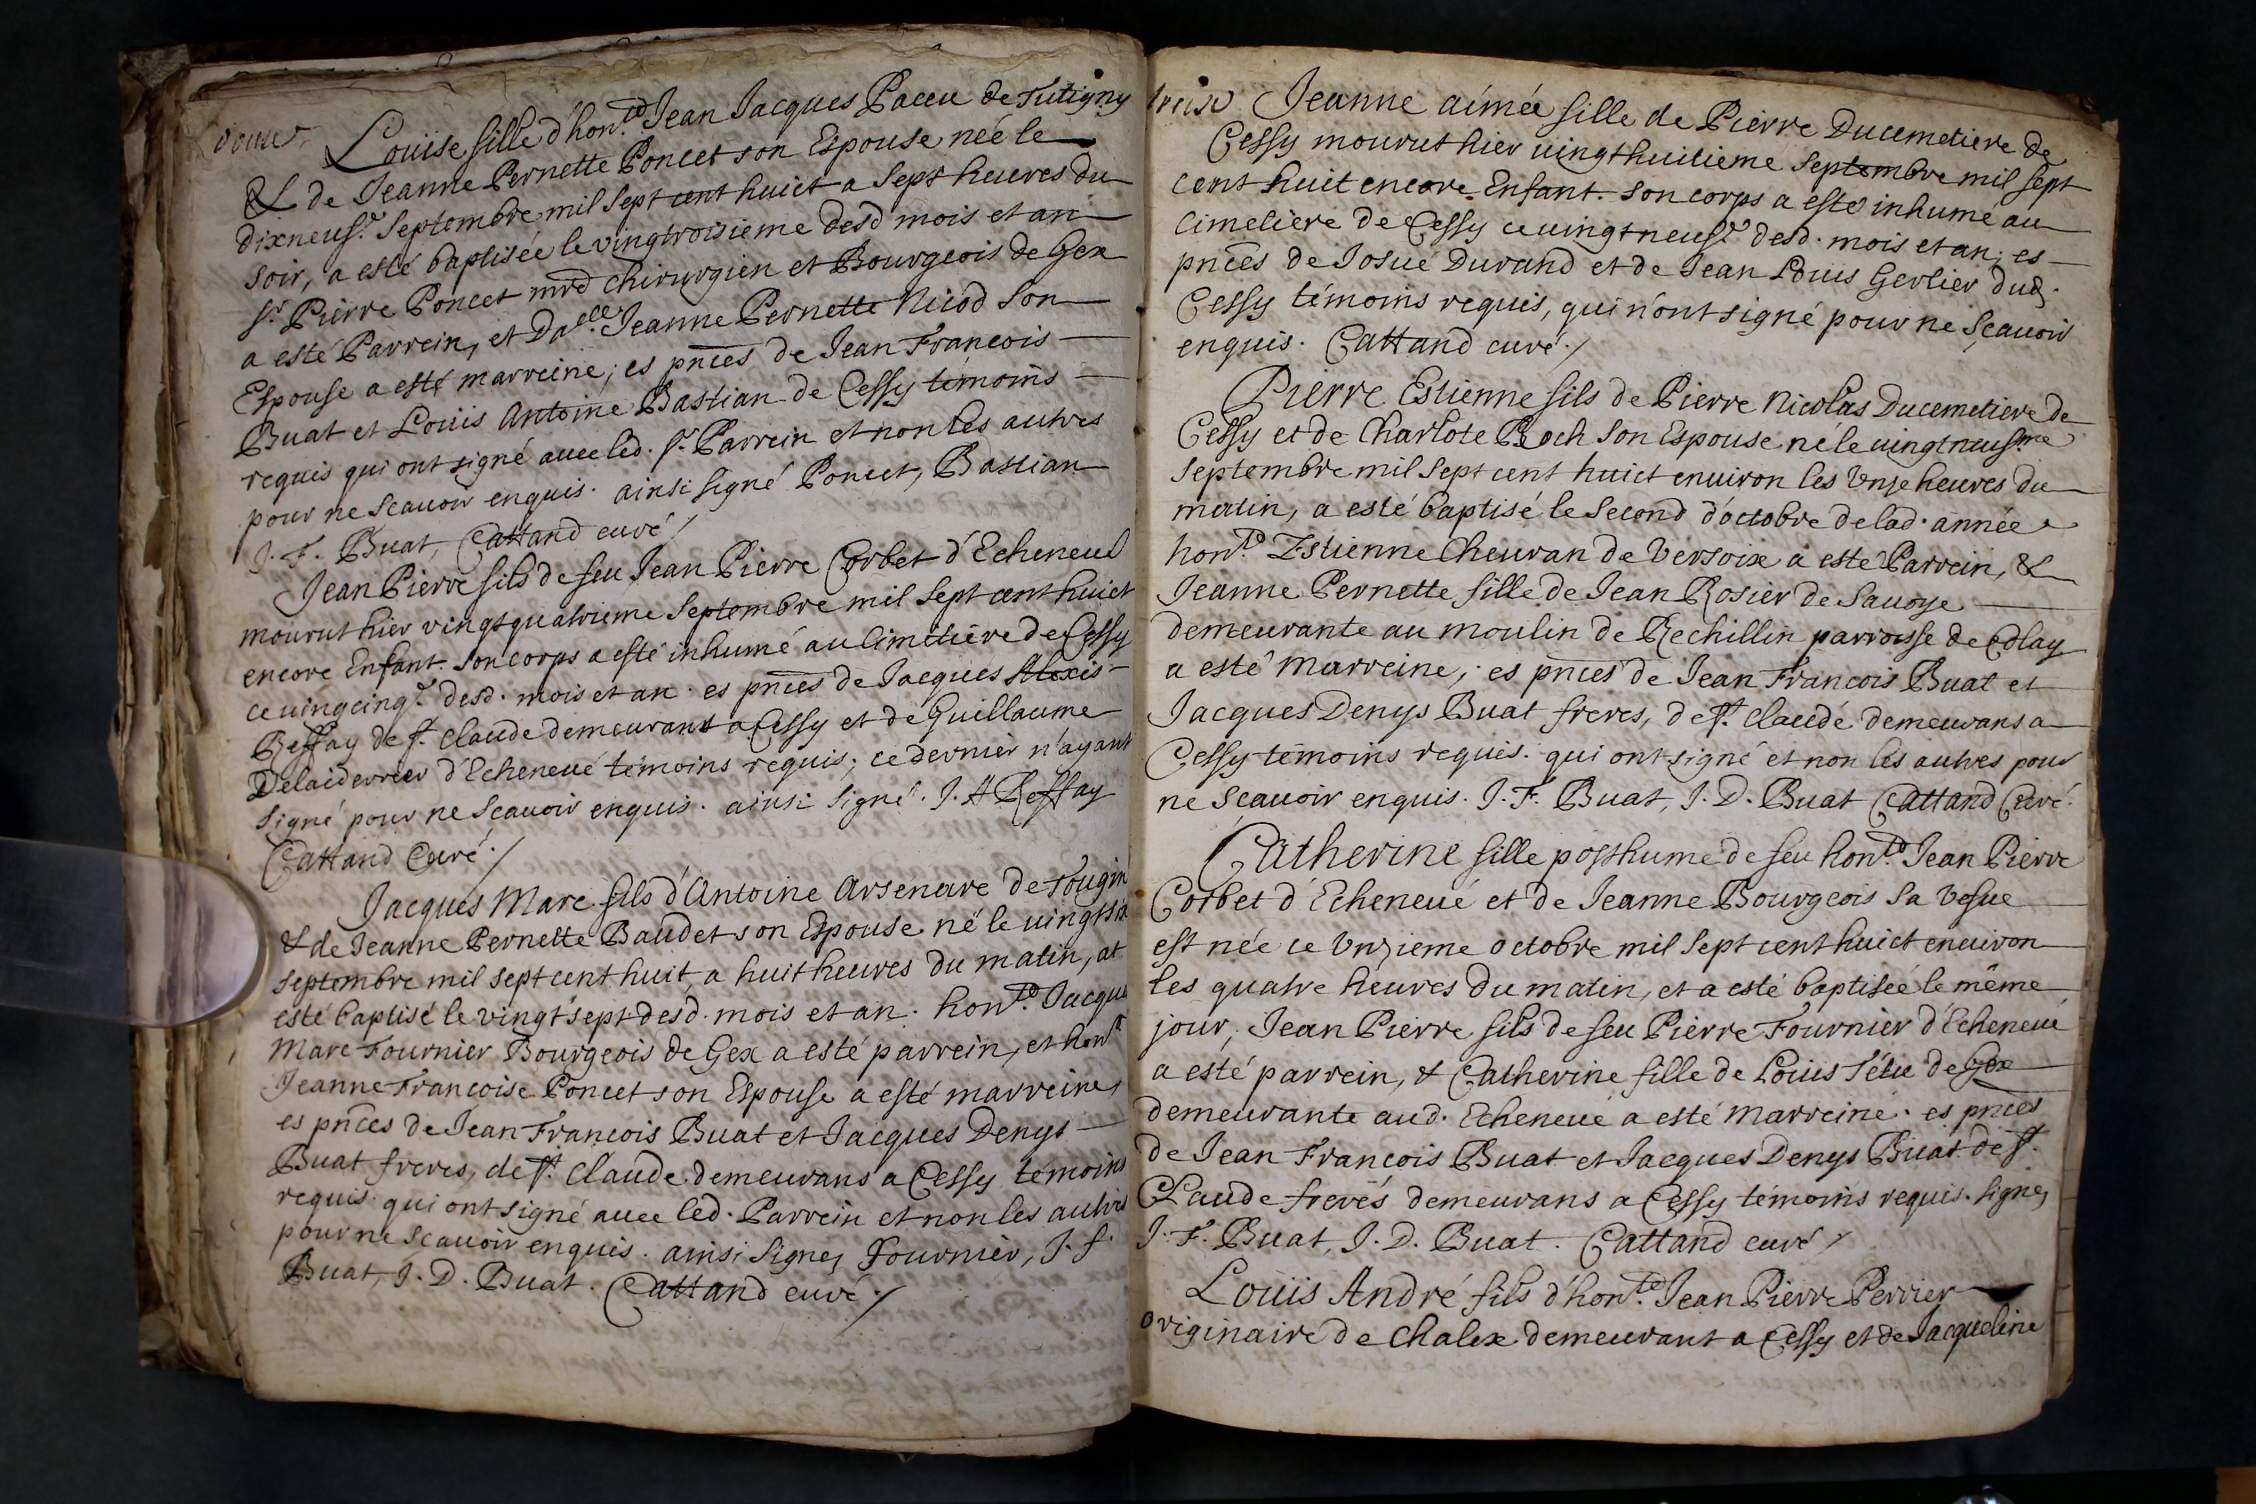 douze
Loüise fille d'hon.te Jean Jacques Paccu de Tutigny
& de Jeanne Pernette Poncet son Espouse née le
dixneuf.e Septembre mil Sept cent huict a Sept heures du
soir, a esté baptisée le vingtroisieme desd mois et an
Sr. Pierre Poncet mrd chirurgien et Bourgeois de Gex
a esté Parrein, et Dalle. Jeanne Pernette Nicod Son
Espouse a esté marreine; es pnces de Jean Francois
Buat et Loüis Antoine Bastian de Cessy témoins
requis qui ont signé avec led. Sr. Parrein et non les autres
pour ne Scavoir enquis. ainsi Signé Poncet, Bastian
J. F. Buat, Cattand curé /
Jean Pierre fils de feu Jean Pierre Corbet d'Echeneué
mourut hier vingtquatrieme Septembre mil Sept cent huict
encore Enfant. Son corps a esté inhumé au Cimetiére de Cessy
ce vingcinq.e desd. mois et an. es pnces de Jacques Alexis
Reffay de St. Claude demeurant a Cessy et de Guillaume
Delaiderrier d'Echeneué témoins requis; ce dernier n'ayant
Signé pour ne Scavoir enquis. ainsi Signé. J. A Reffay
Cattand Curé. /
Jacques Marc fils d'Antoine Arsenare de Tougin
& de Jeanne Pernette Baudet son Espouse né le vingtsix
Septembre mil sept cent huit, a huit heures du matin, at
esté baptisé le vingt sept desd. mois et an. hon.te Jacque
Marc Fournier Bourgeois de Gex a esté parrein, et hon.te
Jeanne Francoise Poncet son Espouse a esté marreine,
es pnces de Jean Francois Buat et Jacques Denys
Buat freres, de St. Claude demeurans a Cessy témoins
requis qui ont signé avec led. Parrein et non les autres
pour ne Scavoir enquis. ainsi Signes Fournier, J. f.
Buat, J. D. Buat. Cattand curé. /
treize
Jeanne aimée fille de Pierre Ducemetiere de
Cessy mourut hier vingthuitieme Septembre mil sept
cent huit encore Enfant. Son corps a esté inhumé au
Cimetiere de Cessy ce vingtneuf.e desd. mois et an; es
pnces de Josué Durand et de Jean Loüis Gerlier dud.
Cessy témoins requis, qui n'ont signé pour ne Scavoir
enquis. Cattand curé. /
Pierre Estienne fils de Pierre Nicolas Ducemetiere de
Cessy et de Charlote Roch Son Espouse né le vingtneuf.me
Septembre mil Sept cent huict environ les Unze heures du
matin, a esté baptisé le Second d'octobre de lad. année
hon.te Estienne Chevran de Versoix a esté Parrein, &
Jeanne Pernette fille de Jean Rosier de Savoye
demeurante au moulin de Rechillin parroisse de Colay
a esté Marreine; es pnces de Jean Francois Buat et
Jacques Denys Buat freres, de St. Claude demeurans a
Cessy témoins requis. qui ont signé et non les autres pour
ne Scavoir enquis. J. F. Buat, J. D. Buat Cattand Curé.
Catherine fille posthume de feu hon.te Jean Pierre
Corbet d'Echeneué et de Jeanne Bourgeois Sa Vefue
est née ce Unzieme octobre mil Sept cent huict environ
les quatre heures du matin, et a esté baptisée le même
jour, Jean Pierre fils de feu Pierre Fournier d'Echeneué
a esté parrein, & Catherine fille de Loüis Tétu de Gex
demeurante aud. Echeneué a esté Marreine. es pnces
de Jean Francois Buat et Jacques Denys Buat de St.
Claude freres demeurans a Cessy témoins requis. Signes
J. F. Buat, J. D. Buat. Cattand curé /
Loüis André fils d'hon.te Jean Pierre Perrier
originaire de Chalex demeurant a Cessy et de Jacqueline